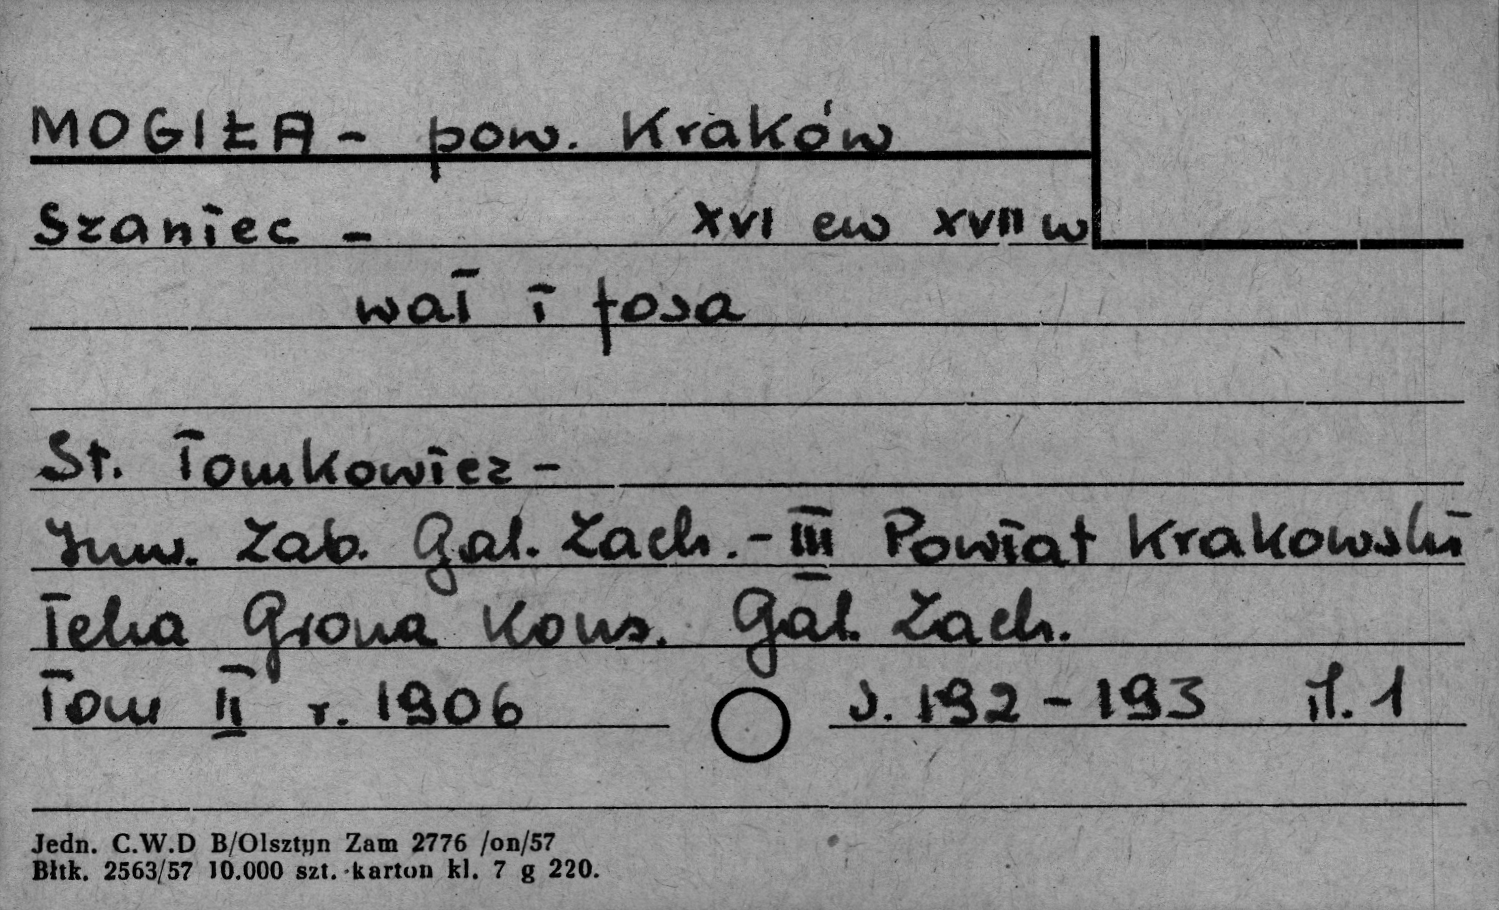 MOGIŁA - pow. Kraków
Szaniec - XVI ew XVII w
wał i fosa
St. Tomkowicz -
Inw. Zab. Gal. Zach. - III Powiat Krakowski
Teka Grona Kons. Gal. Zach.
Tom II r. 1906 s. 192 - 193 il. 1
Jedn. C.W.D B/Olsztyn Zam 2776 /on/57
Błtk. 2563/57 10.000 szt. karton kl. 7 g 220.